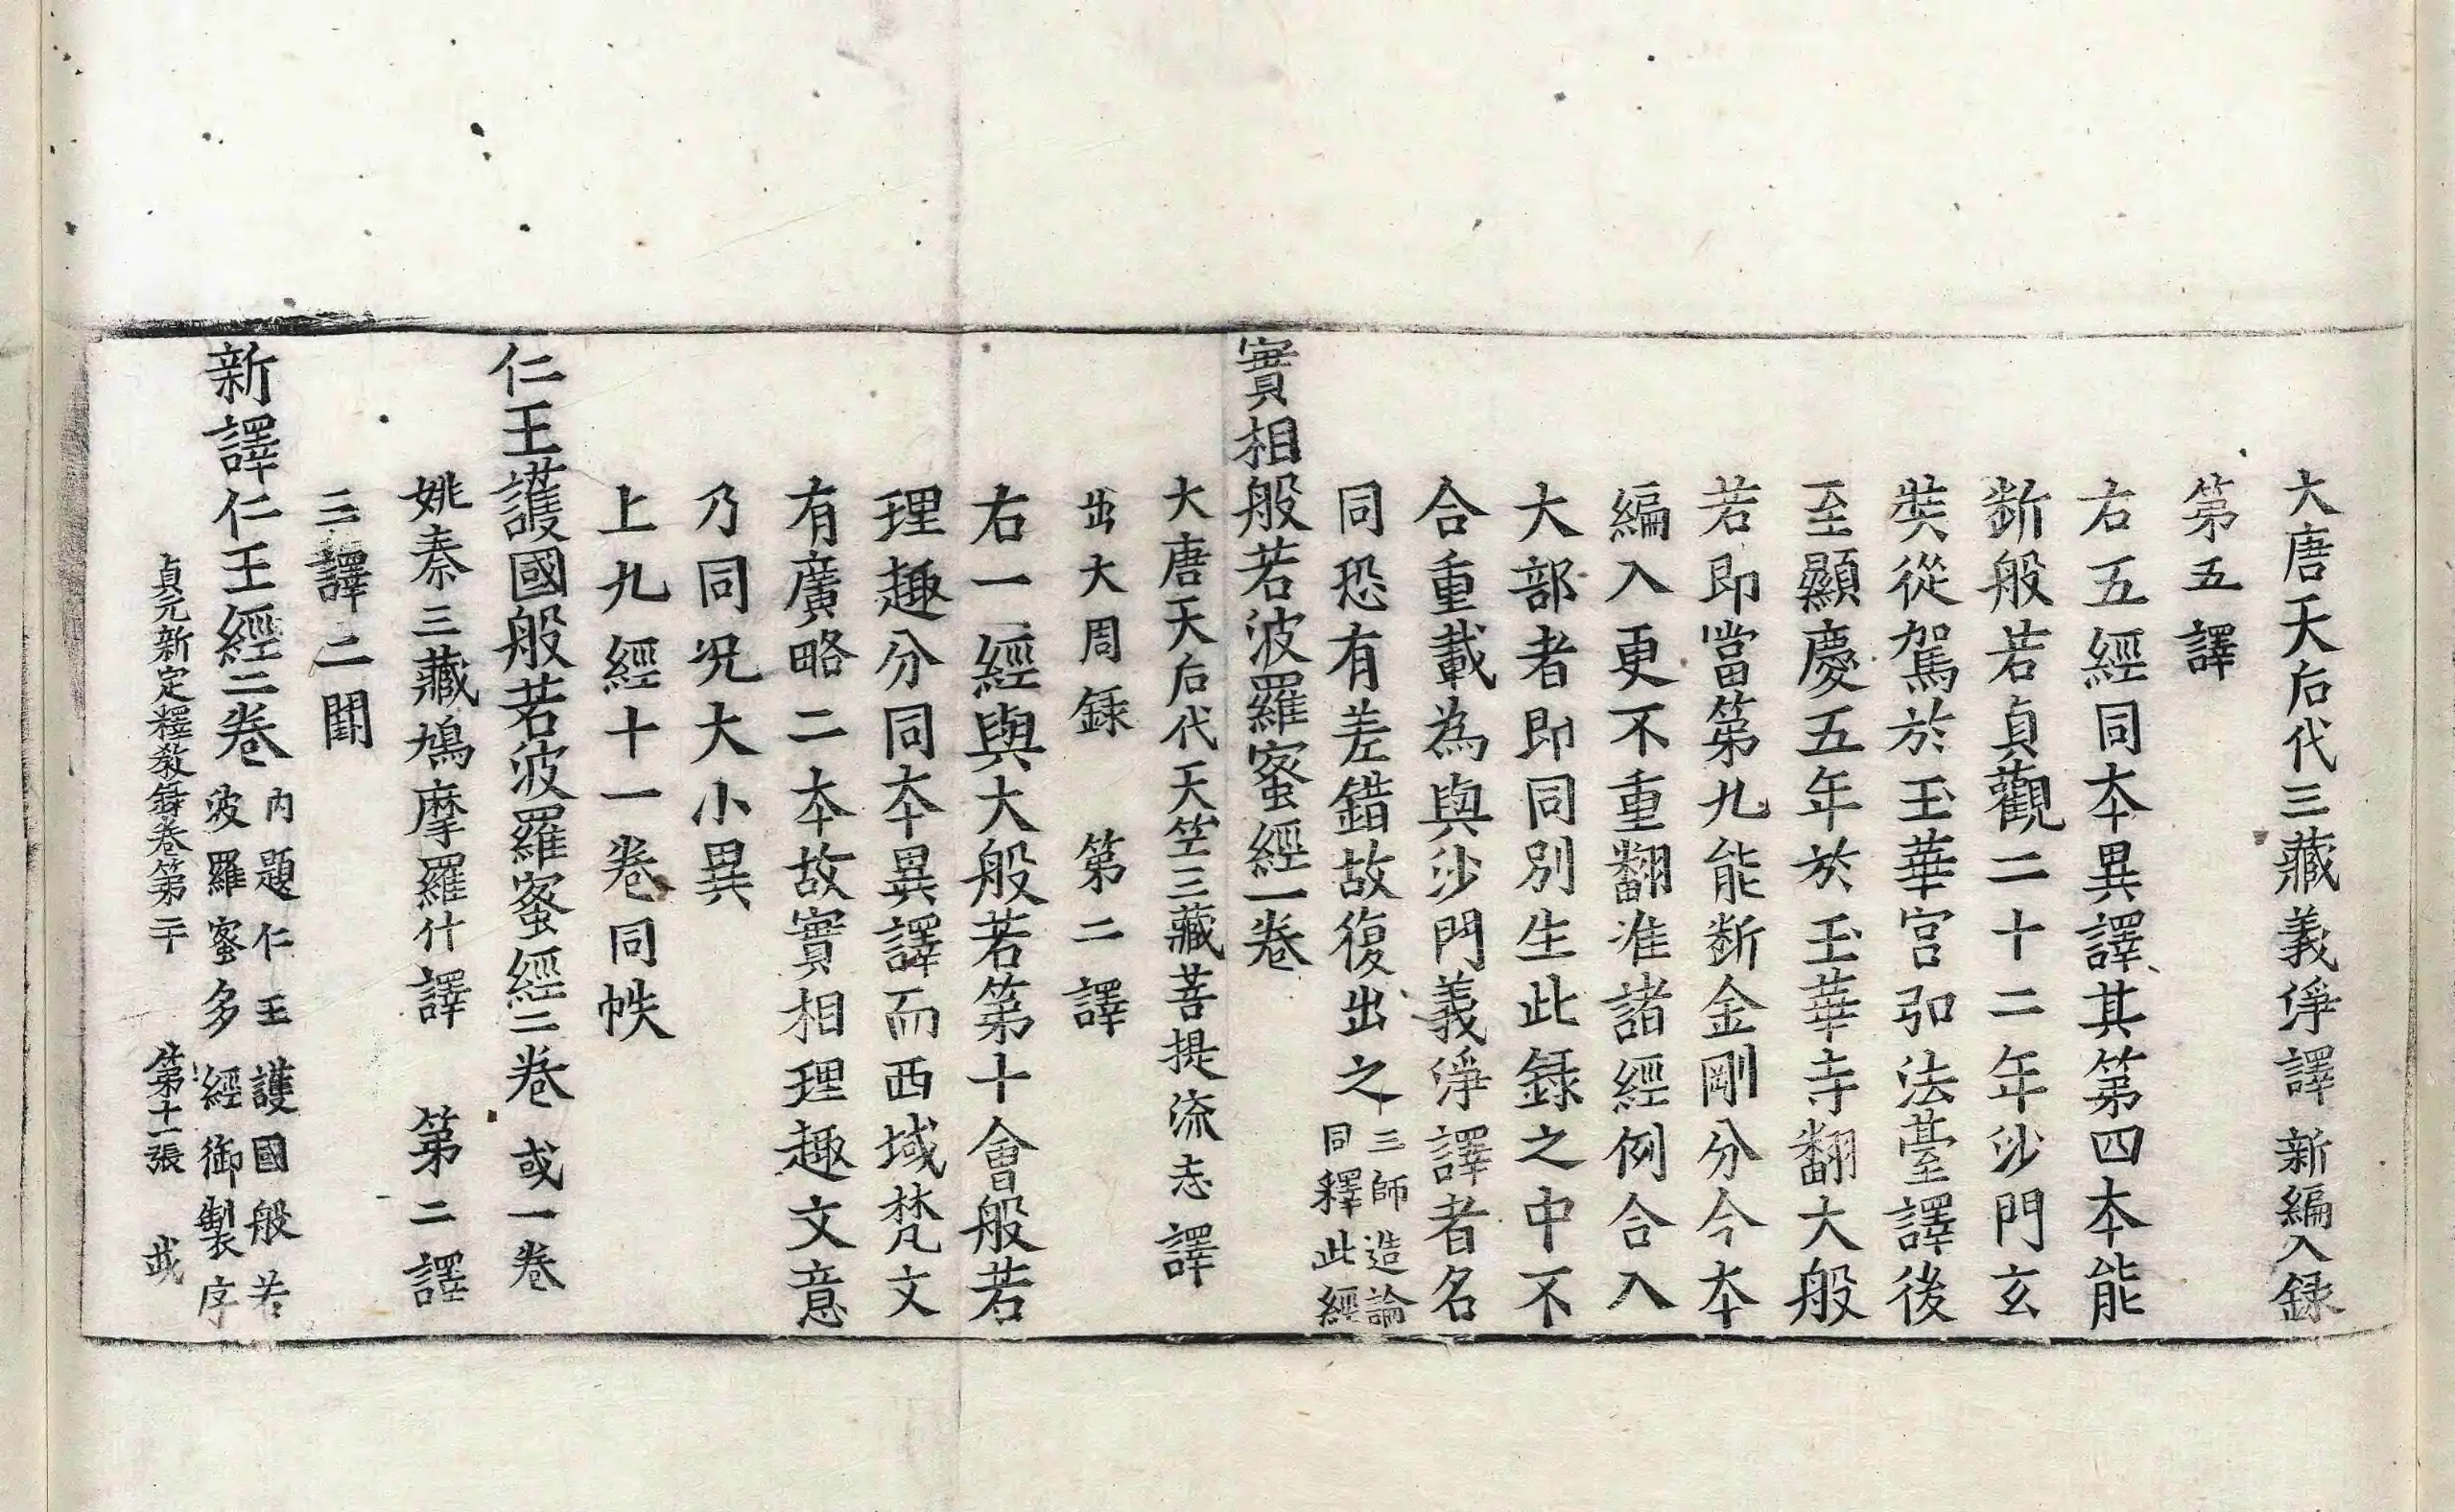 大唐天后代三藏義淨譯新編入録
第五譯
右五經同本異譯其第四本能
斷般若貞觀二十二年沙門玄
奘從駕於玉華宮弘法臺譯後
至顯慶五年於玉華寺翻大般
若即當第九能斷金剛分今本
編入更不重翻准諸經例合入
大部者即同別生此録之中不
合重載為與沙門義淨譯者名
同恐有差錯故復出之三師造論
同釋此經
實相般若波羅蜜經一卷
大唐天后代天竺三藏菩提流志譯
出大周録 第二譯
右一經與大般若第十會般若
理趣分同本異譯而西域梵文
有廣略二本故實相理趣文意
乃同呪大小異
上九經十一卷同帙
仁王護國般若波羅蜜經二卷或一卷
姚秦三藏鳩摩羅什譯 第二譯
三譯二闕
新譯仁王經二卷內題仁王護國般若
波羅蜜多經御製序
貞元新定釋教録卷第二十 第十一張 㦲